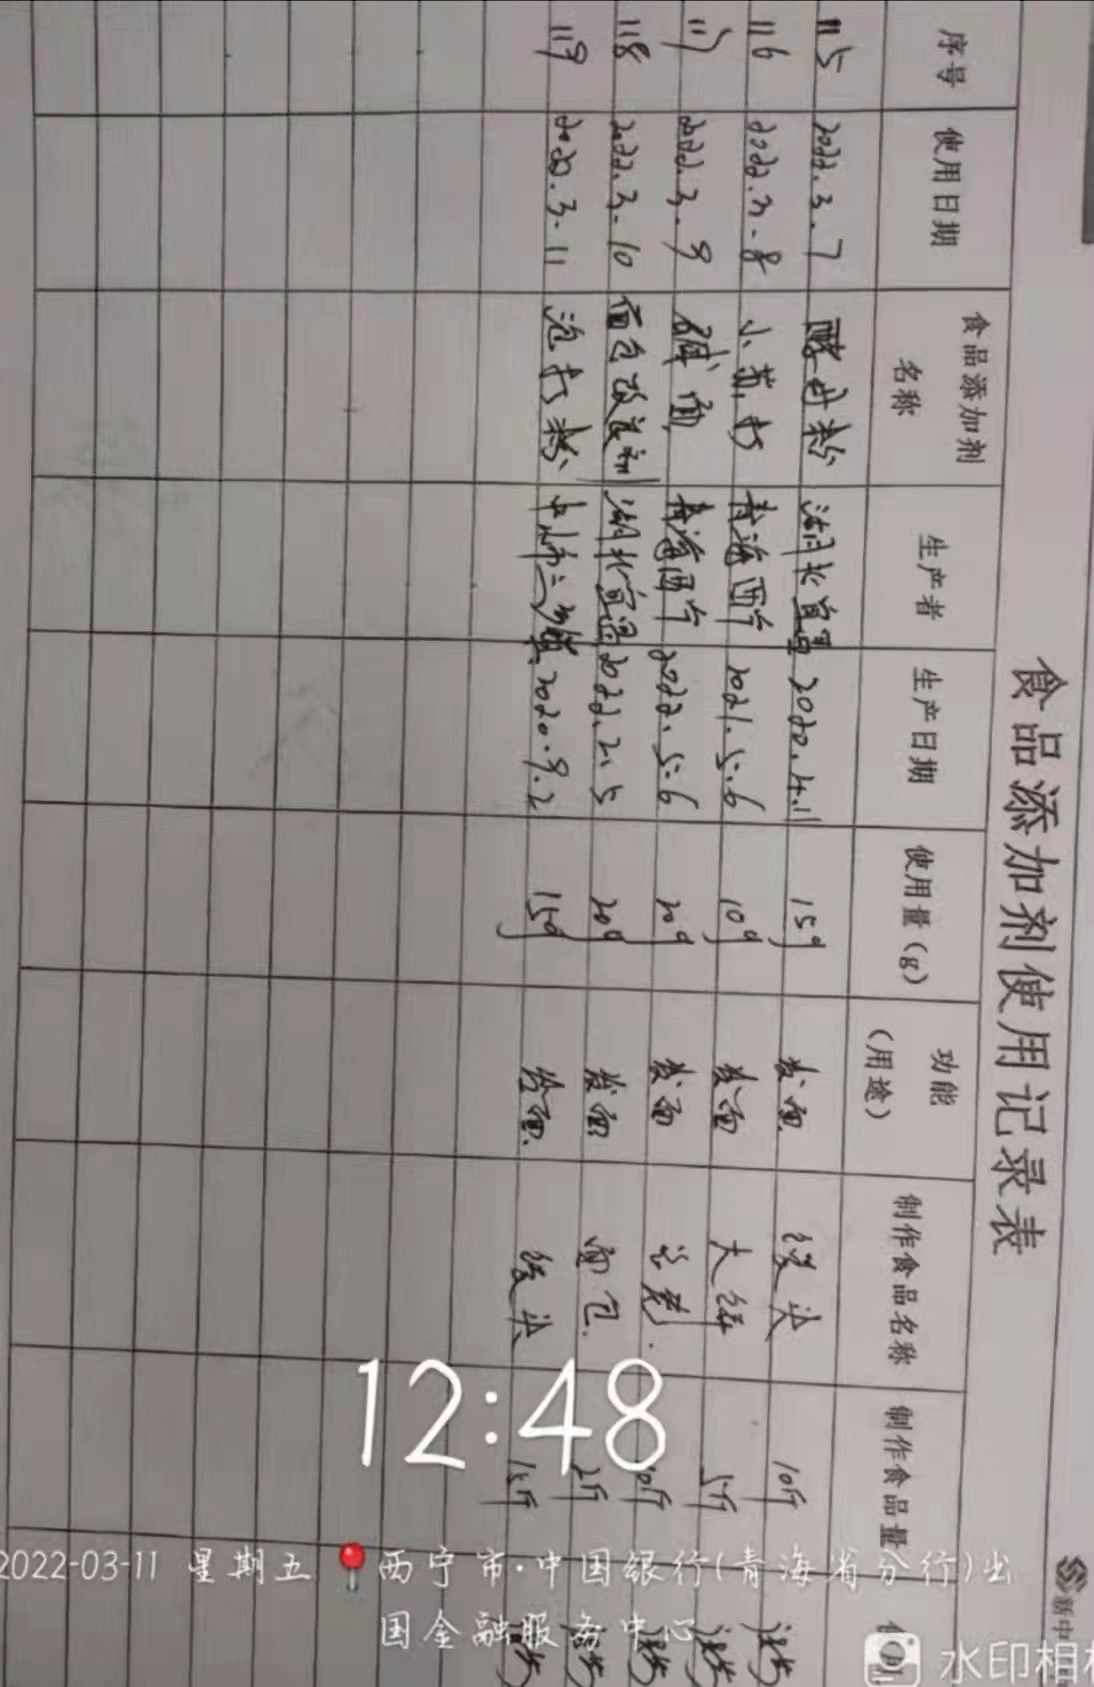 食品添加剂使用记录表
序号 使用日期 食品添加剂名称 生产者 生产日期 使用量(g) 功能(用途) 制作食品名称 制作食品量
115 2022.3.7 酵母粉 湖北宜昌 2020.4.11 15g 发面 馒头 10斤
116 2022.3.8 小苏打 青海西宁 2021.5.6 10g 发面 大饼 5斤
117 2022.3.9 碱面 青海西宁 2022.5.6 20g 发面 10斤
118 2022.3.10 面包改良剂 湖北宜昌 2022.2.5 20g 发面 面包 2斤
119 2022.3.11 泡打粉 2020.9.2 15g 发面 馒头 15斤
新中
12:48
2022-03-11 星期五 西宁市·中国银行(青海省分行)出
国金融服务中心
水印相机